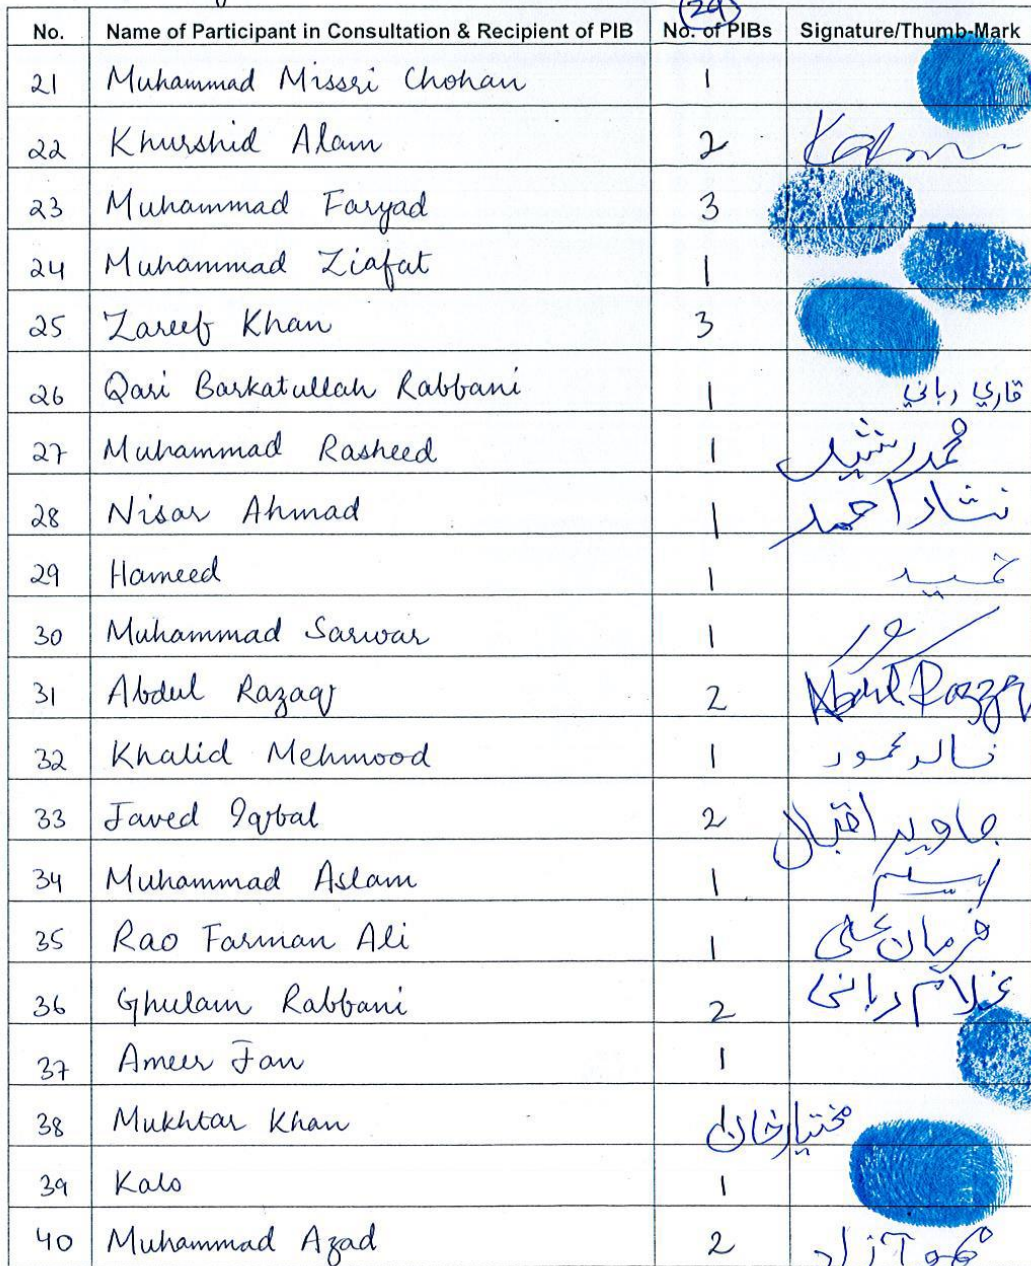 (29)
No. Name of Participant in Consultation & Recipient of PIB No. of PIBs Signature/Thumb-Mark
21 Muhammad Missri Chohan 1
22 Khurshid Alam 2
23 Muhammad Faryad 3
24 Muhammad Ziafat 1
25 Zareef Khan 3
26 Qari Barkatullah Rabbani 1 قاري رباني
27 Muhammad Rasheed 1 محمد رشید
28 Nisar Ahmad 1 نثار احمد
29 Hameed 1 حمید
30 Muhammad Sarwar 1
31 Abdul Razaq 2 Abdul Razzaq
32 Khalid Mehmood 1 خالد محمود
33 Javed Iqbal 2 جاوید اقبال
34 Muhammad Aslam 1
35 Rao Farman Ali 1 فرمان علی
36 Ghulam Rabbani 2 غلام ربانی
37 Ameer Jan 1
38 Mukhtar Khan 1 مختیار خان
39 Kalo 1
40 Muhammad Azad 2